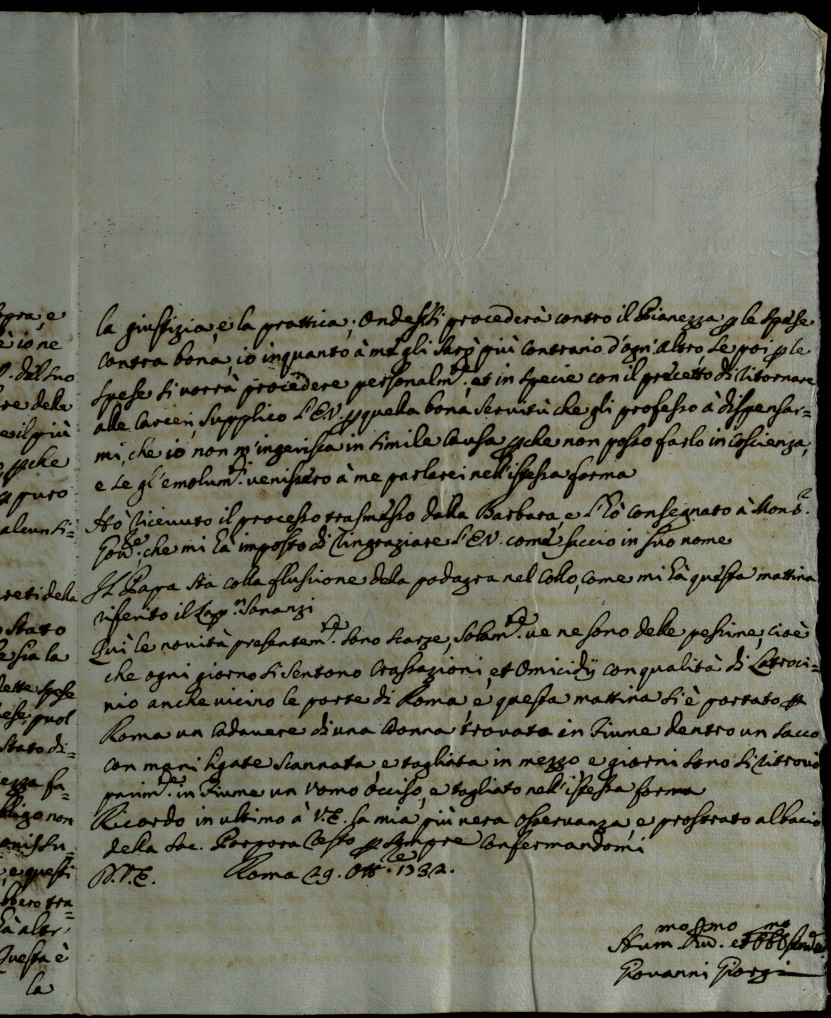 opra, e
è io ne
del suo
re delle
e il più
che
puro
alcun si=
reti della
Stato
e sia la
dette spese
ese, puol
Stato di=
ezza fa=
bligo non
e questi
bbero tra=
hà altr'
Questa è
la
la giustizia, e la prattica; Onde se si procederà contro il Pianezza p le spese
contra bona, io inquanto à me gli sarò più contrario d'ogn'altro, se poi p le
spese si vorrà procedere personalm.te, et in specie con il precetto di ritornare
alle Carceri, supplico l'E.V. p quella bona servitù che gli professo à dispensar=
mi, che io non m'ingerisca in simile Causa pche non posso farlo in coscienza,
e se gl'emolum.ti venissero à me parlerei nell'istessa forma
Hò ricevuto il processo trasmesso dalla Barbara, e l'hò consegnato à Mons.r
Gov.re, che mi hà imposto di ringraziare l'E.V. come faccio in suo nome
Il Pappa stà colla flussione della podagra nel Collo, come mi hà questa mattina
riferito il Capp.n Sananzi
Quì le novità presentem.te sono scarze, solam.te ve ne sono delle pessime, cioè
che ogni giorno si sentono Crassazioni, et Omicidij con qualità di Latroci=
nio anche vicino le porte di Roma e questa mattina si è portato p
Roma un Cadavere di una Donna trovata in Fiume dentro un sacco
con mani ligate scannata, e tagliata in mezzo e giorni sono si ritrovò
parim.te in Fiume un Uomo occiso, e tagliato nell'istessa forma
Ricordo in ultimo à V.E. la mia più vera osservanza, e prostrato al bacio
della Sac. Porpora resto p sempre confermandomi
D.V.E. Roma 29. Ott.re 1732.
Hum.mo Dev.mo et Obb.mo Servid.e
Giovanni Giorgi